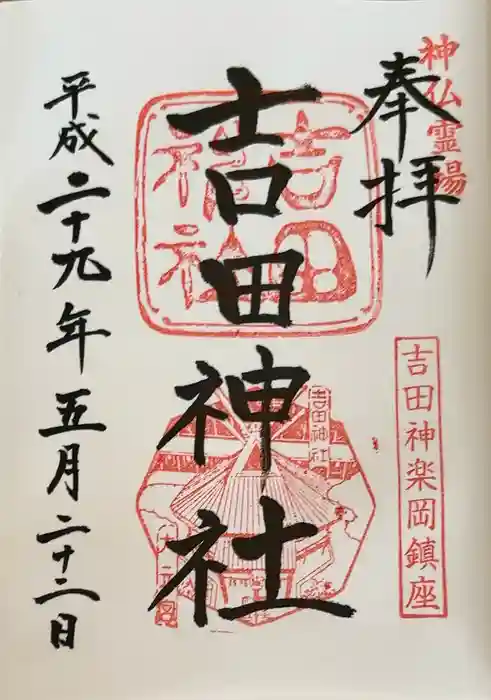 神仏霊場
奉拝
吉田神楽岡鎮座
吉田
神社
吉田神社
吉田神社
平成二十九年五月二十二日